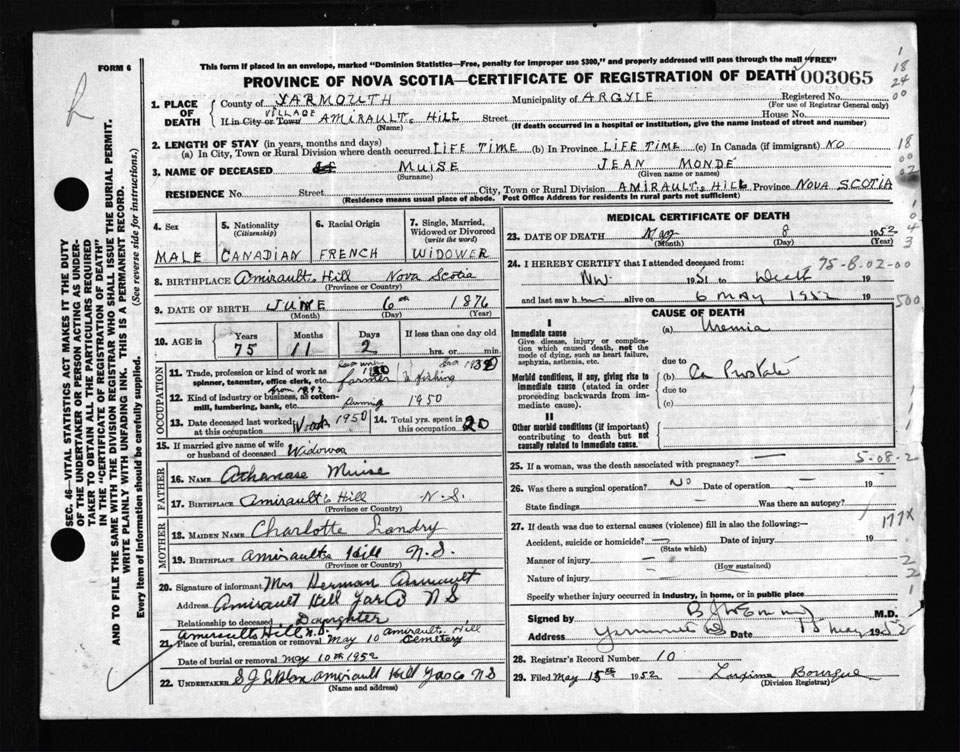 This form if placed in an envelope, marked "Dominion Statistics—Free, penalty for improper use $300," and properly addressed will pass through the mail "FREE"
FORM 6
PROVINCE OF NOVA SCOTIA—CERTIFICATE OF REGISTRATION OF DEATH 003065
R
1. PLACE OF DEATH
County of YARMOUTH Municipality of ARGYLE Registered No.
(For use of Registrar General only)
VILLAGE
If in City or Town AMIRAULTs HILL Street House No.
(Name) (If death occurred in a hospital or institution, give the name instead of street and number)
2. LENGTH OF STAY (in years, months and days)
(a) In City, Town or Rural Division where death occurred LIFE TIME (b) In Province LIFE TIME (c) In Canada (if immigrant) NO
3. NAME OF DECEASED MUISE JEAN MONDE
(Surname) (Given name or names)
RESIDENCE No. Street City, Town or Rural Division AMIRAULTs HILL Province NOVA SCOTIA
(Residence means usual place of abode. Post Office Address for residents in rural parts not sufficient)
4. Sex 5. Nationality 6. Racial Origin 7. Single, Married, Widowed or Divorced
(Citizenship) (write the word)
MALE CANADIAN FRENCH WIDOWER
8. BIRTHPLACE Amiraults Hill Nova Scotia
(Province or Country)
9. DATE OF BIRTH JUNE 6th 1876
(Month) (Day) (Year)
10. AGE in Years Months Days If less than one day old
75 11 2 hrs. or min.
OCCUPATION
11. Trade, profession or kind of work as spinner, teamster, office clerk, etc. farmer fishing
from 1892
12. Kind of industry or business, as cotten-mill, lumbering, bank, etc. 1950
13. Date deceased last worked at this occupation 1950 14. Total yrs. spent in this occupation 20
15. If married give name of wife or husband of deceased Widower
FATHER
16. Name Athanase Muise
17. Birthplace Amiraults Hill N.S.
(Province or Country)
MOTHER
18. Maiden Name Charlotte Landry
19. Birthplace Amiraults Hill N.S.
(Province or Country)
20. Signature of informant Mrs Herman Amirault
Address Amirault Hill Yar Co N S
Relationship to deceased Daughter
Amiraults Hill N.S.
21. Place of burial, cremation or removal May 10 amiraults Hill Cemetery
Date of burial or removal May 10th 1952
22. Undertaker S J amirault Hill Yar Co N S
(Name and address)
MEDICAL CERTIFICATE OF DEATH
23. DATE OF DEATH May 8 1952
(Month) (Day) (Year)
24. I HEREBY CERTIFY that I attended deceased from: 75-8-02-00
Nov 1951 to Death 19
and last saw h im alive on 6 MAY 1952 19
CAUSE OF DEATH
I
Immediate cause
Give disease, injury or complication which caused death, not the mode of dying, such as heart failure, asphyxia, asthenia, etc.
(a) Uremia
due to
Morbid conditions, if any, giving rise to immediate cause (stated in order proceeding backwards from immediate cause).
(b) Ca Prostate
due to
(c)
II
Other morbid conditions (if important) contributing to death but not causally related to immediate cause.
25. If a woman, was the death associated with pregnancy? — 5-08-2
26. Was there a surgical operation? NO Date of operation — 19
State findings — Was there an autopsy?
27. If death was due to external causes (violence) fill in also the following:— 177X
Accident, suicide or homicide? — Date of injury 19
(State which)
Manner of injury —
(How sustained)
Nature of injury —
Specify whether injury occurred in industry, in home, or in public place
Signed by M.D.
Address Yarmouth Date 15 May 1952
28. Registrar's Record Number 10
29. Filed May 15th 1952 Bourque
(Division Registrar)
SEC. 46—VITAL STATISTICS ACT MAKES IT THE DUTY OF THE UNDERTAKER OR PERSON ACTING AS UNDERTAKER TO OBTAIN ALL THE PARTICULARS REQUIRED IN THE "CERTIFICATE OF REGISTRATION OF DEATH" AND TO FILE THE SAME WITH THE DIVISION REGISTRAR WHO SHALL ISSUE THE BURIAL PERMIT.
WRITE PLAINLY WITH UNFADING INK. THIS IS A PERMANENT RECORD.
Every item of information should be carefully supplied. (See reverse side for instructions.)